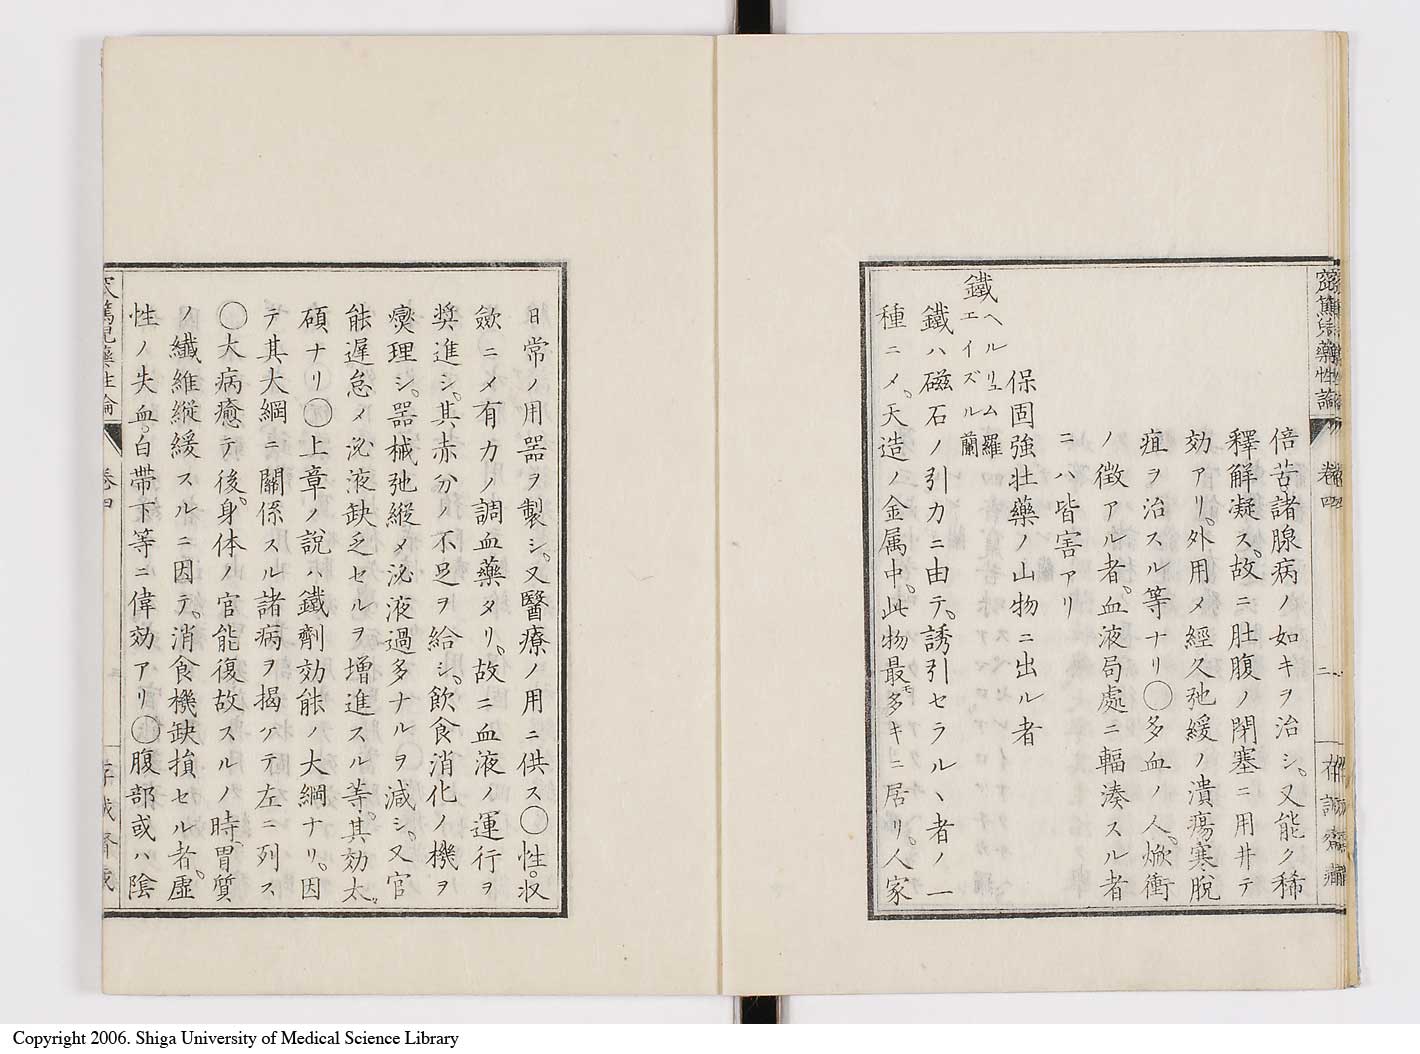 窊篤児藥性論 卷四 二 存誠齋藏
倍苦諸腺病ノ如キヲ治シ又能ク稀
釋解凝ス故ニ肚腹ノ閉塞ニ用井テ
効アリ外用メ經久弛緩ノ潰瘍寒脱
疽ヲ治スル等ナリ〇多血ノ人焮衝
ノ徴アル者血液局處ニ輻湊スル者
ニハ皆害アリ
保固強壮藥ノ山物ニ出ル者
鐵 ヘルリュム 羅 エイズル 蘭
鐵ハ磁石ノ引力ニ由テ誘引セラルヽ者ノ一
種ニメ天造ノ金属中此物最モ多キニ居リ人家
日常ノ用器ヲ製シ又醫療ノ用ニ供ス〇性収
斂ニメ有力ノ調血藥タリ故ニ血液ノ運行ヲ
奨進シ其赤分ノ不足ヲ給シ飲食消化ノ機ヲ
爕理シ器械弛縦メ泌液過多ナルヲ減シ又官
能遅怠メ泌液缺乏セルヲ増進スル等其効太タ
碩ナリ〇上章ノ説ハ鐵劑効能ノ大綱ナリ因
テ其大綱ニ關係スル諸病ヲ揭ケテ左ニ列ス
〇大病癒テ後身体ノ官能復故スルノ時胃質
ノ纎維縦緩スルニ因テ消食機缺損セル者虚
性ノ失血白帶下等ニ偉効アリ〇腹部或ハ陰
藥性論 卷四